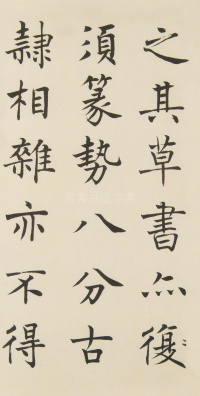 之其草書亦復
須篆勢八分古
隸相雜亦不得